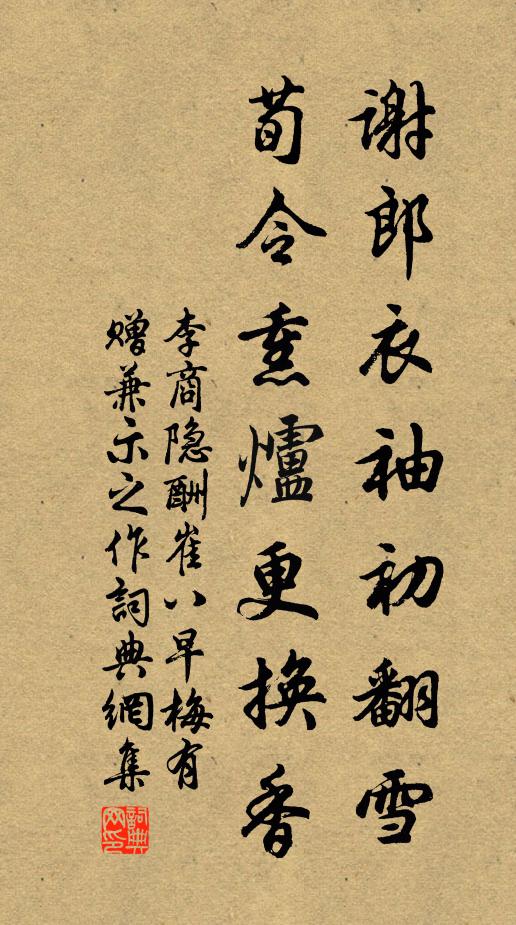 謝郎衣袖初翻雪
荀令熏爐更換香
李商隐酬崔八早梅有
赠兼示之作詞典網集
詞典网印